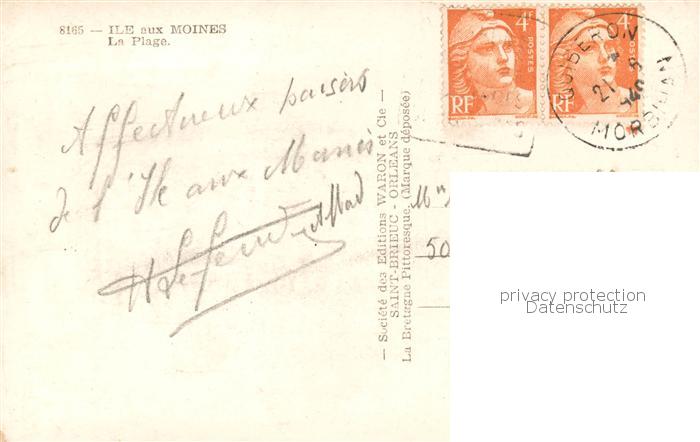 8165 — ILE aux MOINES
La Plage.
Affectueux baisers
de l'Ile aux Moines
— Société des Editions WARON et Cie —
SAINT-BRIEUC - ORLEANS
La Bretagne Pittoresque. (Marque déposée)
4F
POSTES
RF
4F
POSTES
RF
QUIBERON
21
MORBIHAN
50
privacy protection
Datenschutz